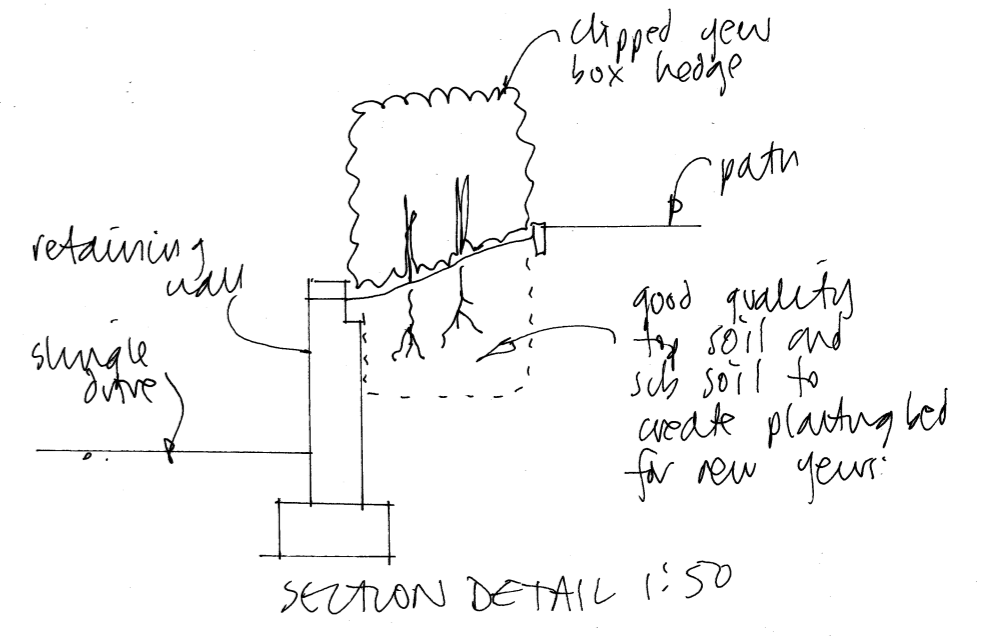 clipped yew
box hedge
path
retaining
wall
shingle
drive
good quality
top soil and
sub soil to
create planting bed
for new yews.
SECTION DETAIL 1:50